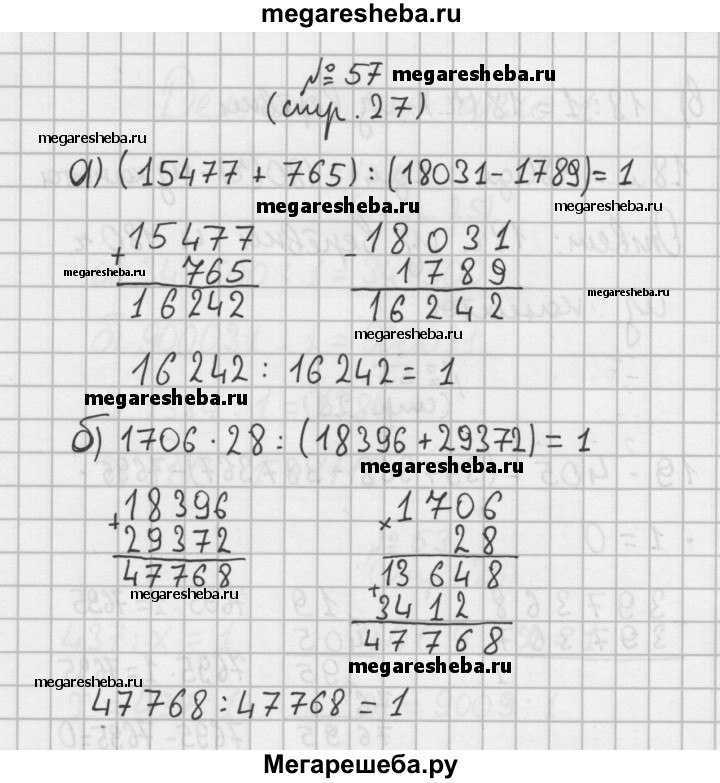 megaresheba.ru
№ 57 megaresheba.ru
(стр. 27)
megaresheba.ru
а) (15477 + 765) : (18031 - 1789) = 1
megaresheba.ru megaresheba.ru
+ 15477 - 18031
765 1789
megaresheba.ru megaresheba.ru
16242 16242
megaresheba.ru
16242 : 16242 = 1
megaresheba.ru
б) 1706 · 28 : (18396 + 29372) = 1
megaresheba.ru
+ 18396 × 1706
29372 28
47768 + 13648
megaresheba.ru 3412
47768
megaresheba.ru
megaresheba.ru
47768 : 47768 = 1
Мегарешеба.ру